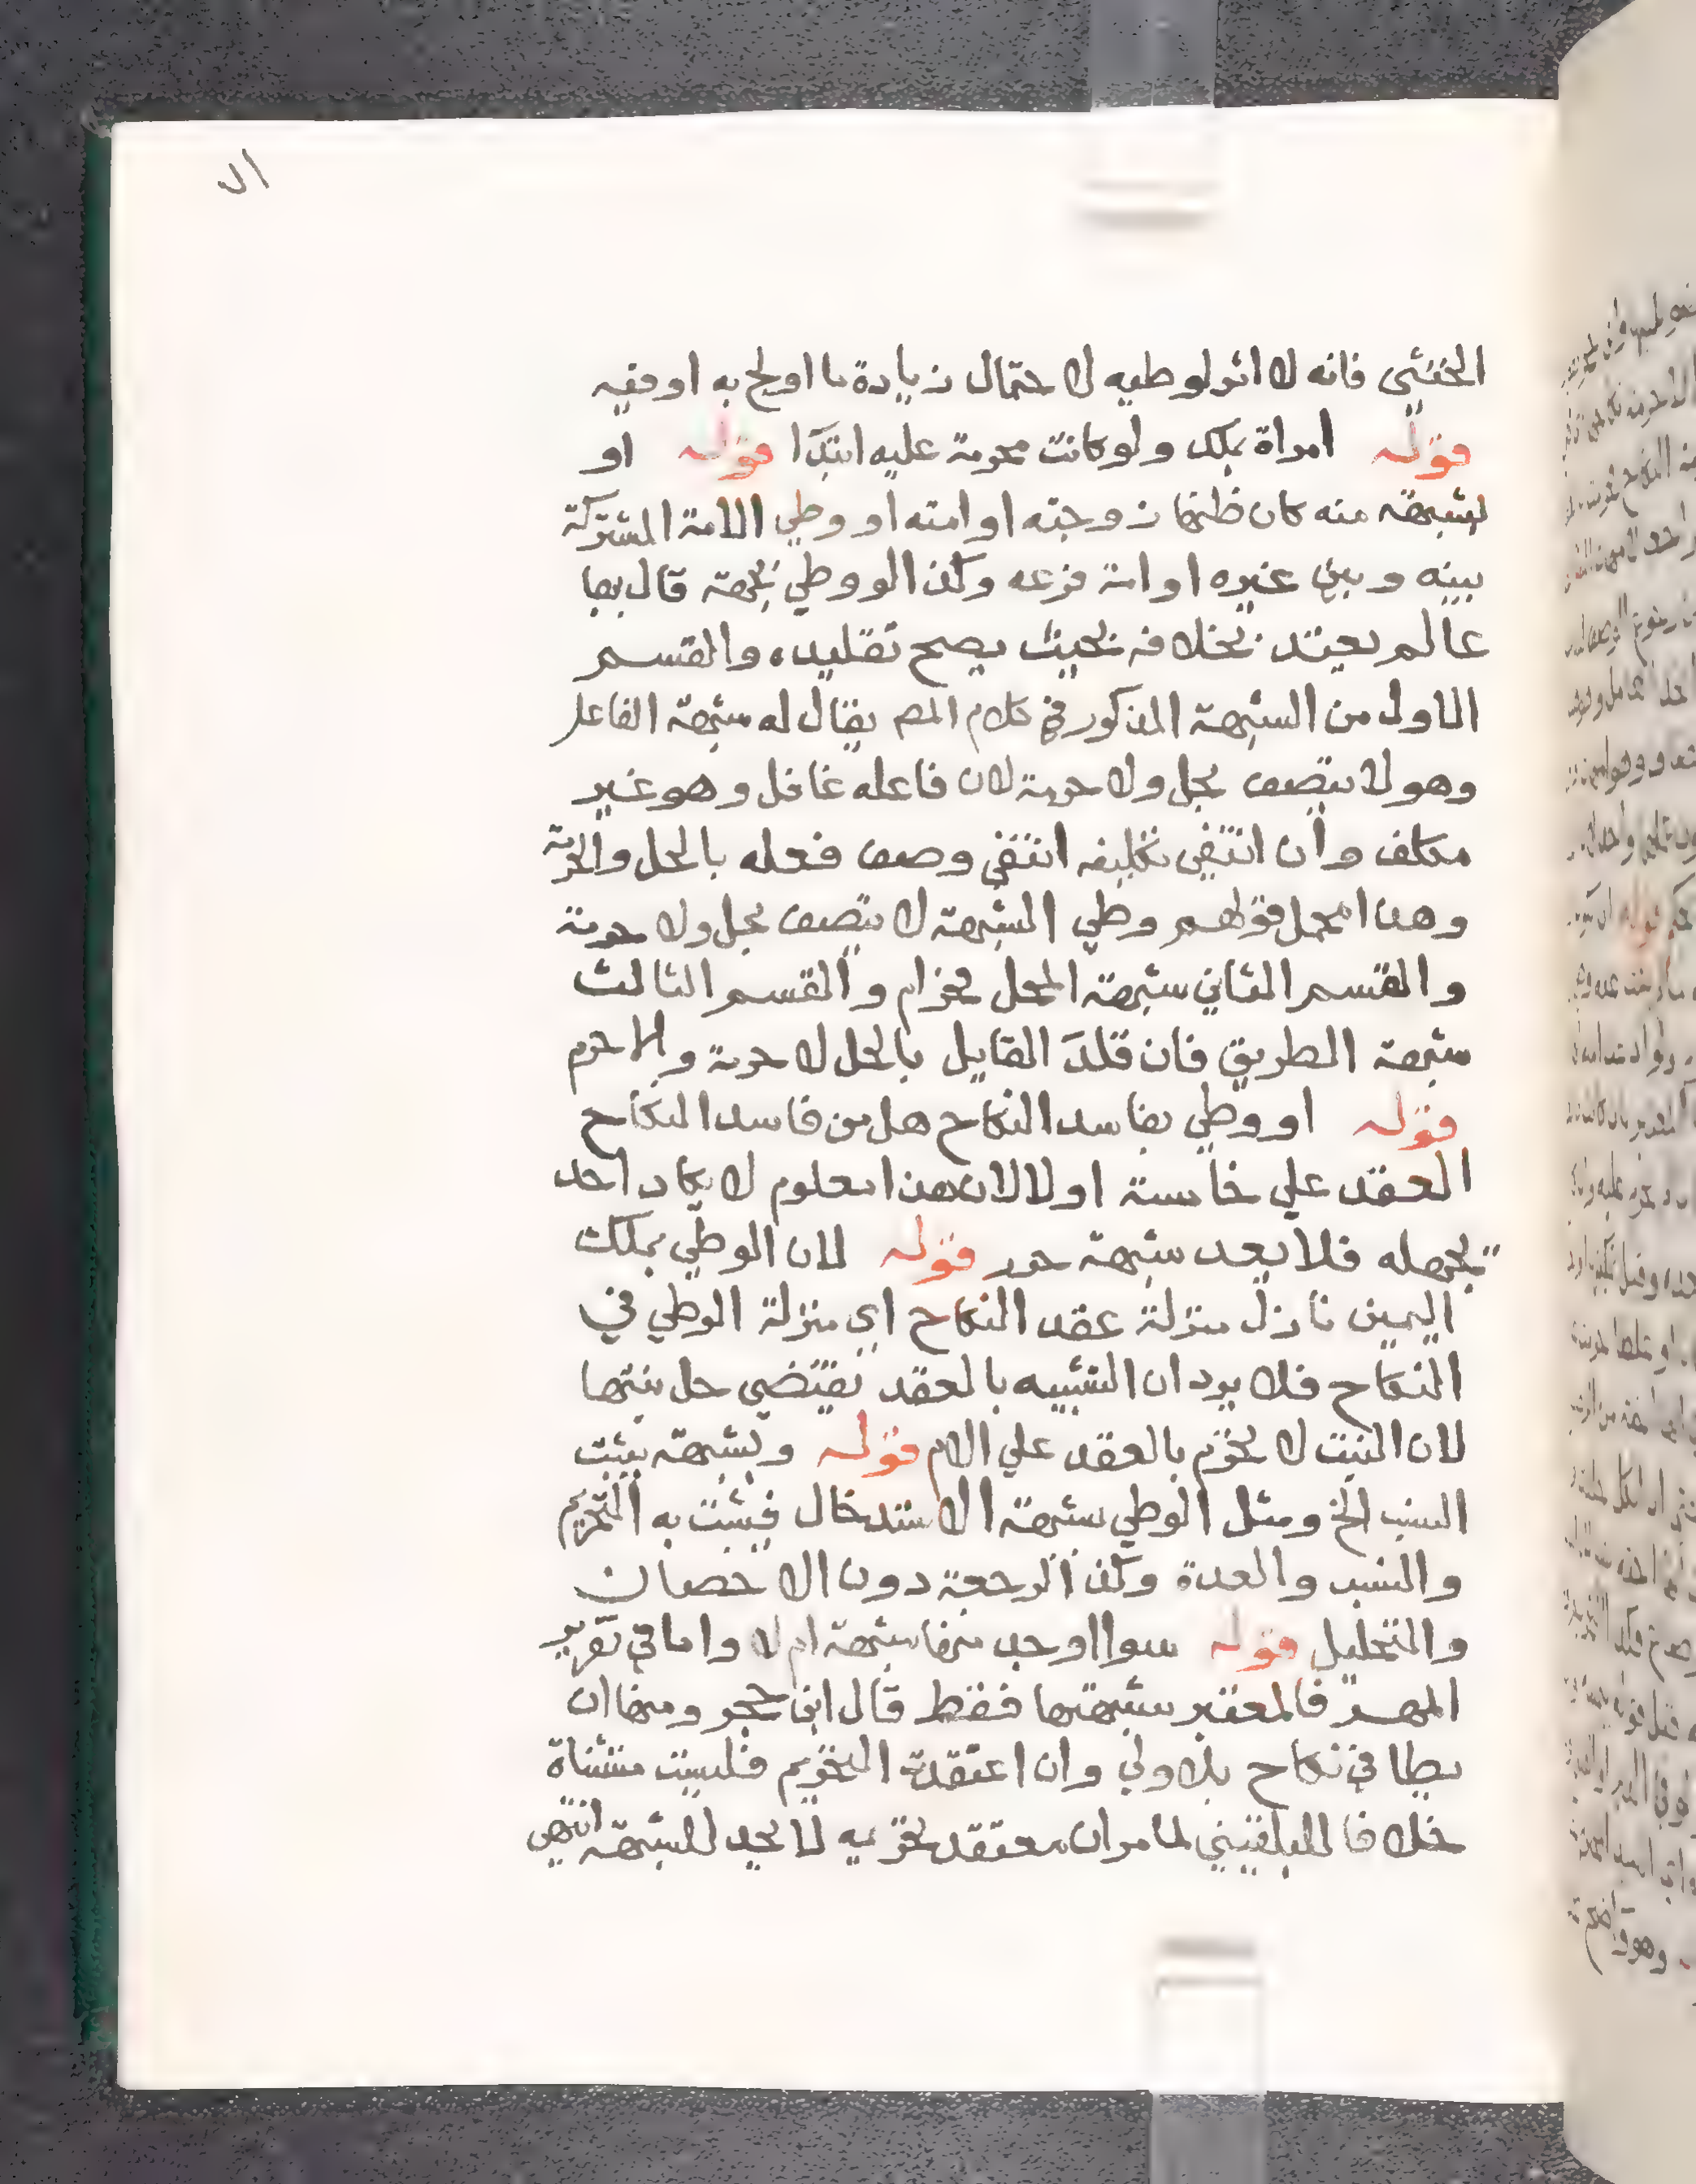 الخنثي فانه لا اثر لوطيه لاحتمال زيادة ما اولج به او فيه
قوله امراة بملك ولو كانت محرمة عليه ابتدا قوله او
بشبهة منه كان ظنها زوجته او امته او وطي الامة المشتركة
بينه وبين غيره او امة فرعه وكذا لو وطي بجهة قال بها
عالم يعتد بخلافه بحيث يصح تقليده والقسم
الاول من الشبهة المذكور في كلام المص يقال له شبهة الفاعل
وهو لا يتصف بحل ولا حرمة لان فاعله غافل وهو غير
مكلف وان انتفي تكليفه انتفي وصف فعله بالحل والحرمة
وهذا محمل قولهم وطي الشبهة لا يتصف بحل ولا حرمة
والقسم الثاني شبهة المحل بحرام والقسم الثالث
شبهة الطريق فان قلد القايل بالحل لا حرمة والا حرم
قوله او وطي بفاسد النكاح هل من فاسد النكاح
العقد علي خامسة او لا لان هذا معلوم لا يكاد احد
يجهله فلا يعد شبهة حرر قوله لان الوطي بملك
اليمين نازل منزلة عقد النكاح اي منزلة الوطي في
النكاح فلا يرد ان التشبيه بالعقد يقتضي حل بنتها
لان البنت لا تحرم بالعقد علي الام قوله وبشبهة يثبت
النسب الخ ومثل الوطي بشبهة الاستدخال فيثبت به التحريم
والنسب والعدة وكذا الرجعة دون الاحصان
والتحليل قوله سوا اوجب منها شبهة ام لا واما في تقرير
المهر فالمعتبر شبهتها فقط قال ابن حجر ومنها ان
يطا في نكاح بلا ولي وان اعتقد التحريم فليست مستثناة
خلافا للبلقيني لما مر ان معتقد تحريمه لا يحد للشبهة انتهي